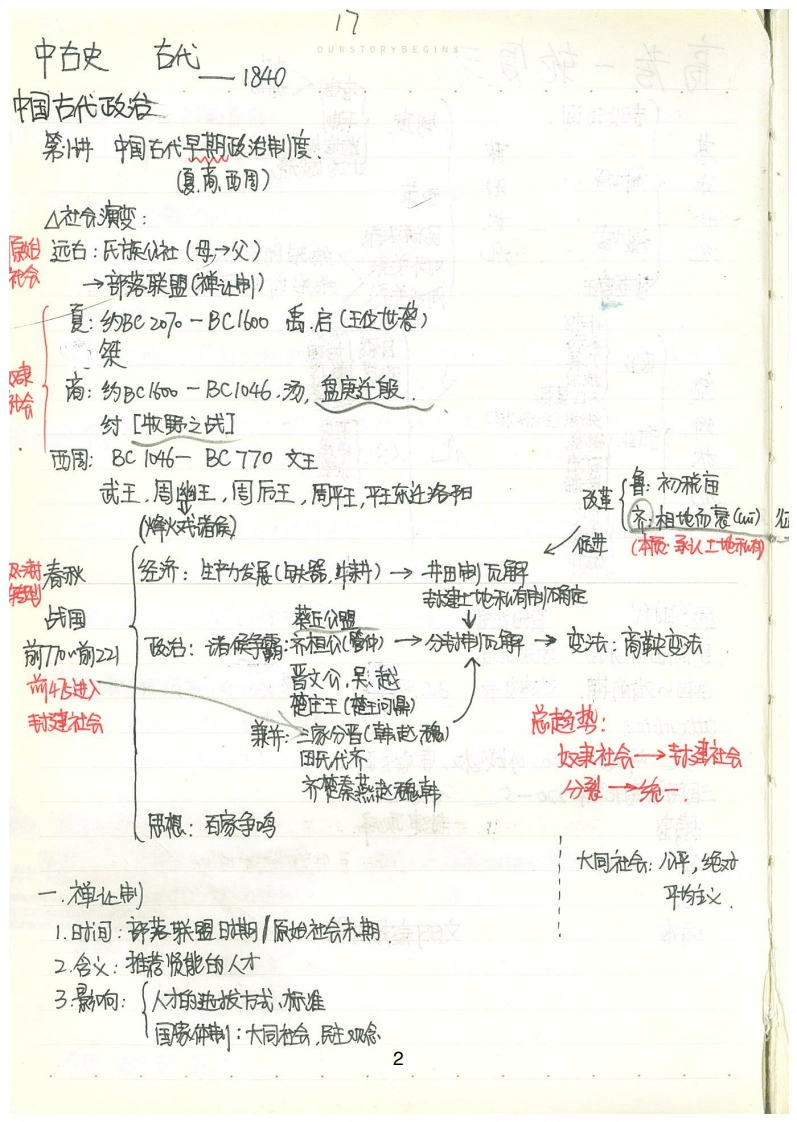 17
OURSTORYBEGINS
中古史 古代——1840
中国古代政治
第1讲 中国古代早期政治制度.
(夏,商,西周)
△社会演变:
原始社会
远古:氏族公社(母→父)
→部落联盟(禅让制)
夏:约BC2070-BC1600 禹.启(王位世袭)
桀
社会
商:约BC1600-BC1046.汤,盘庚迁殷.
纣[牧野之战]
西周:BC1046-BC770 文王
武王,周幽王,周后王,周平王,平王东迁洛阳
(烽火戏诸侯)
改革
鲁:初税亩
齐:相地而衰(cui)
(本质:承认土地私有)
促进
春秋
战国
前770~前221
前475进入
封建社会
经济:生产力发展(铁器,牛耕)→井田制瓦解
封建土地私有制确定
政治:诸侯争霸:齐桓公(管仲)→分封制瓦解→变法:商鞅变法
葵丘会盟
晋文公,吴,越
楚庄王(楚王问鼎)
兼并:三家分晋(韩赵魏)
田氏代齐
齐楚秦燕赵魏韩
思想:百家争鸣
总趋势:
奴隶社会→封建社会
分裂→统一
大同社会:公平,绝对
平均主义.
一.禅让制
1.时间:部落联盟时期/原始社会末期.
2.含义:推荐贤能的人才
3.影响:
人才的选拔方式、标准
国家体制:大同社会,民主观念
2